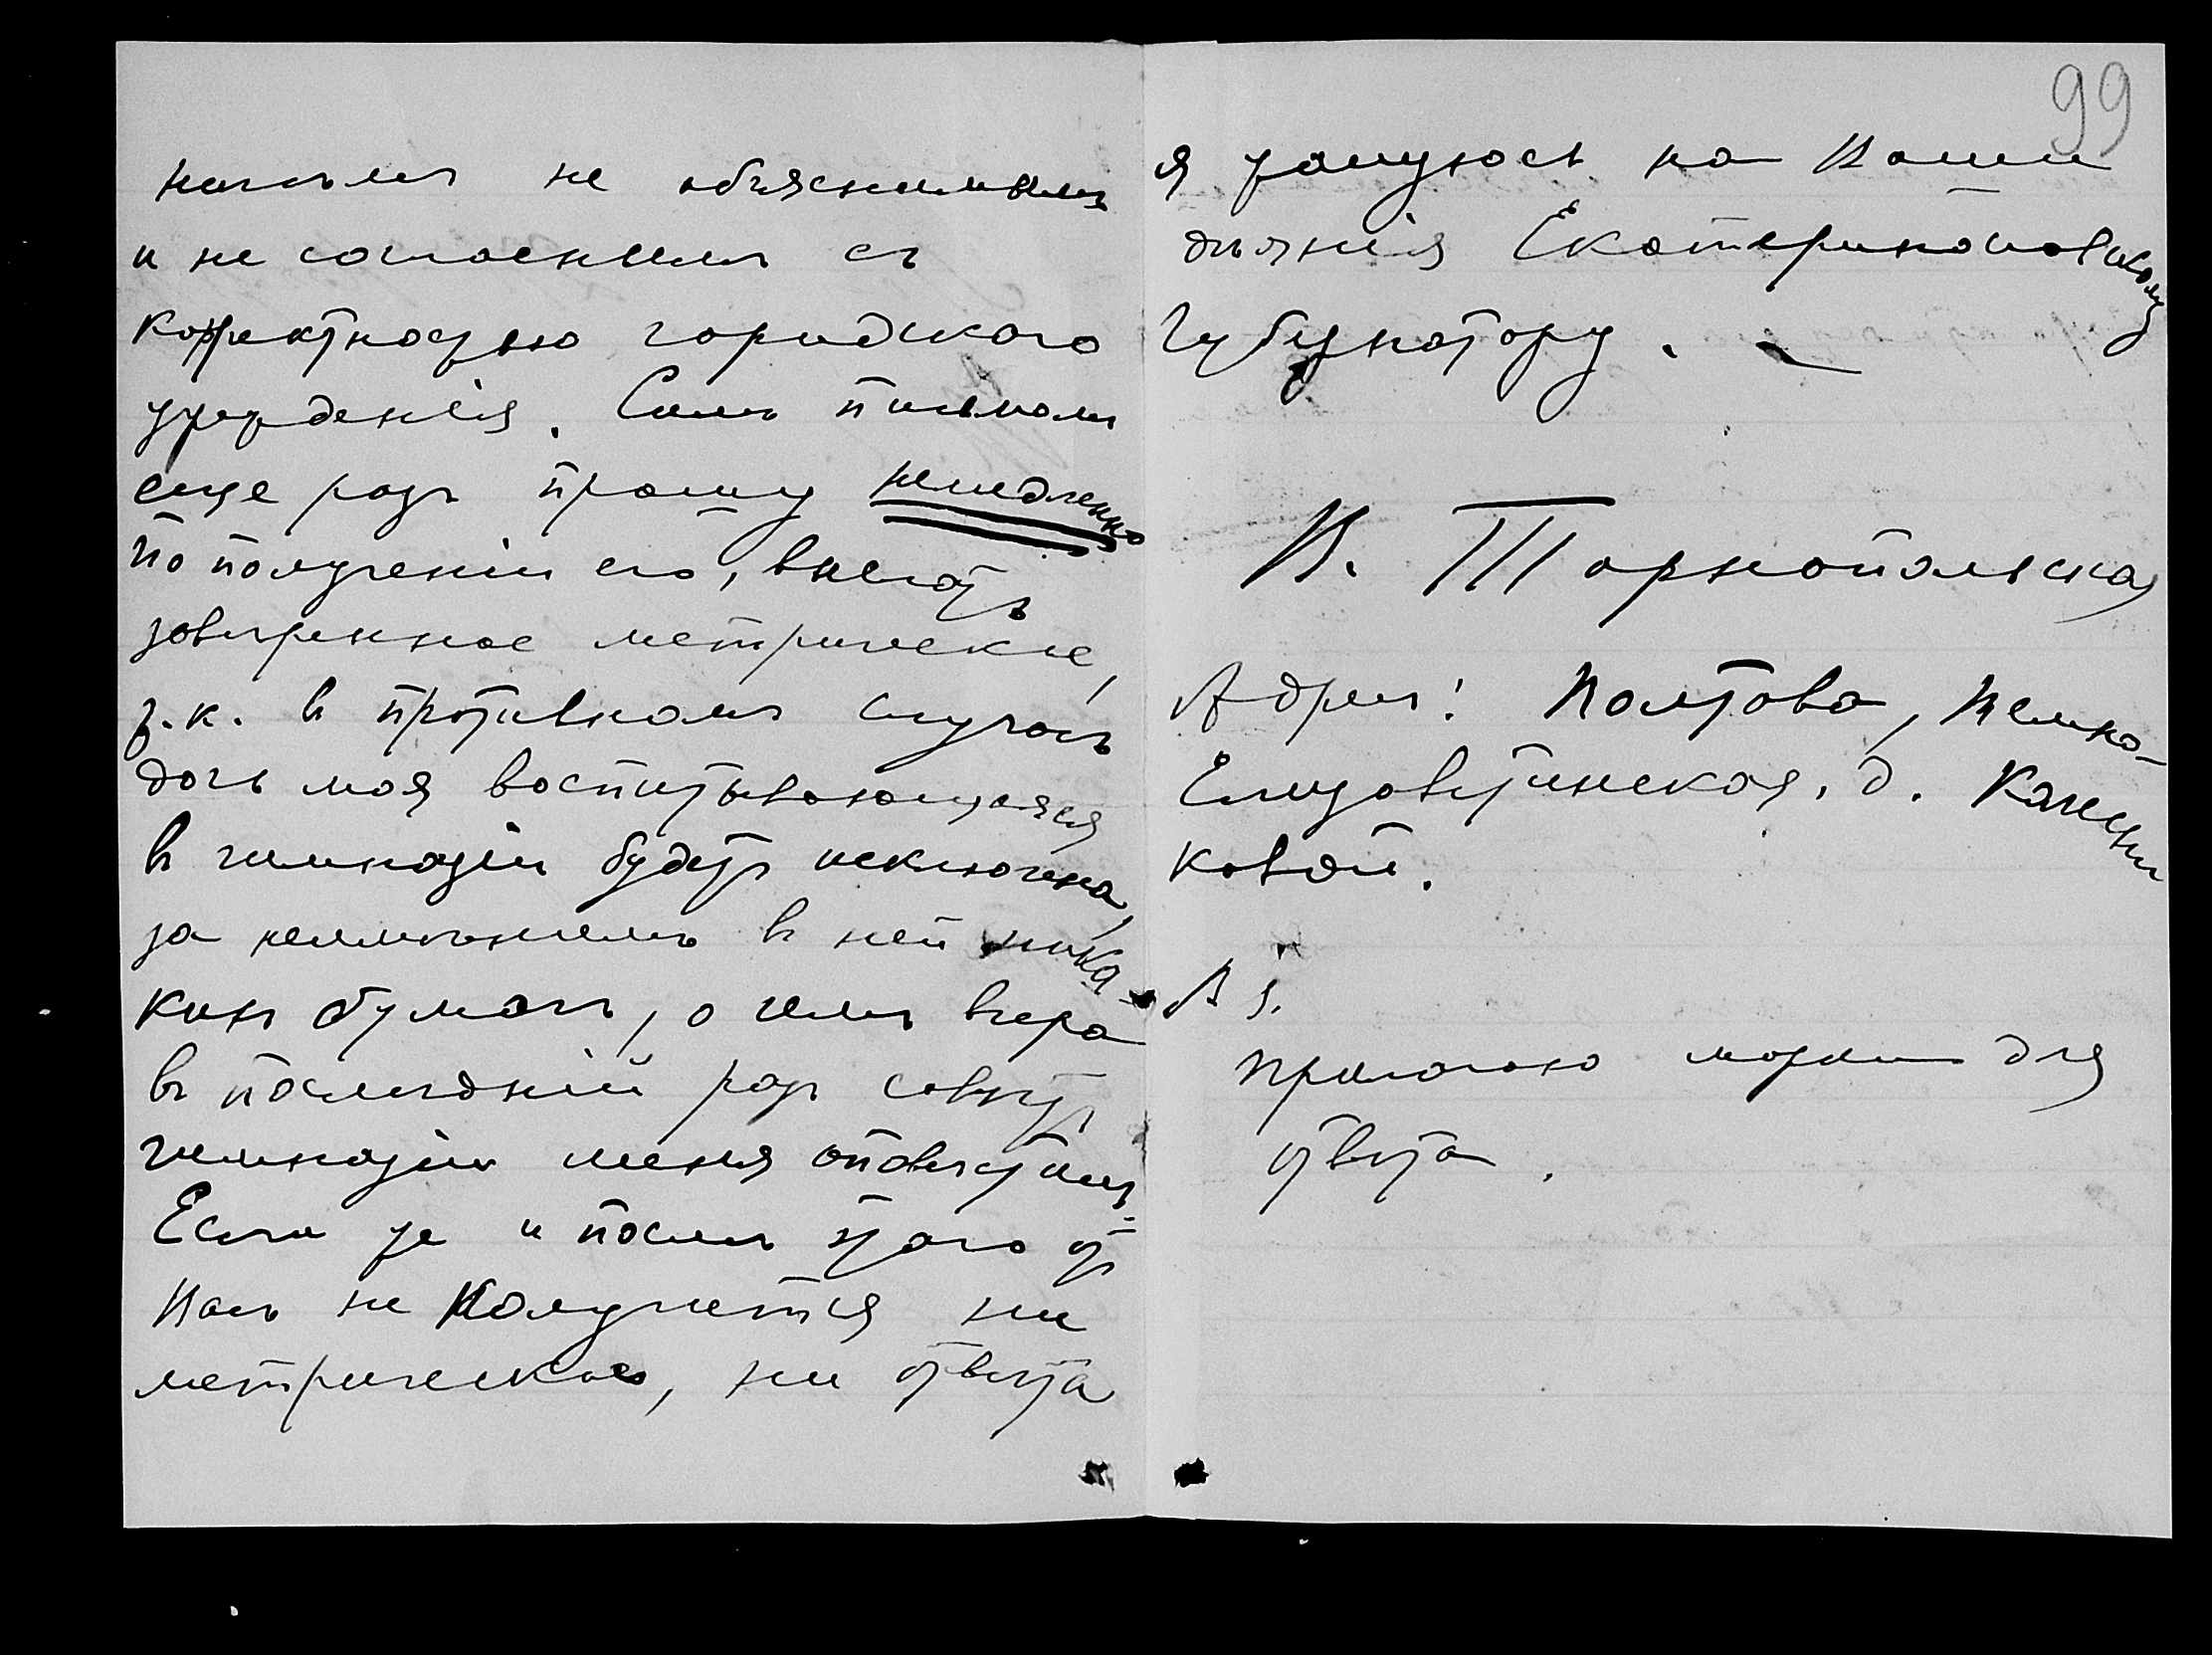 ничѣмъ не объяснимымъ
и не согласнымъ съ
корректностью городского
учрежденія. Симъ письмомъ
еще разъ прошу немедленно
по полученіи его, выслать
завѣренное метрическое,
т.к. въ противномъ случаѣ
дочь моя воспитывающаяся
въ гимназіи будетъ исключена,
за неимѣніемъ въ ней ника-
кихъ бумагъ, о чемъ вчера
въ послѣдній разъ совѣтъ
гимназіи меня оповѣстилъ.
Если же и послѣ этого отъ
Васъ не получится ни
метрическое, ни отвѣта
99
я жалуюсь на Ваши
дѣянія Екатеринославскому
Губернатору.
В. Тарнопольская
Адресъ: Полтава,
Елизаветинская, д.
ковой.
PS.
Прилагаю марки для
отвѣта.